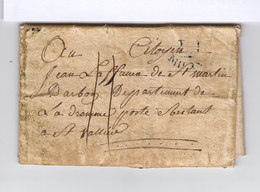 Au Citoyen
Jean La de St martin
Darbon Departement de
La dromme poste Restant
a St Vallier